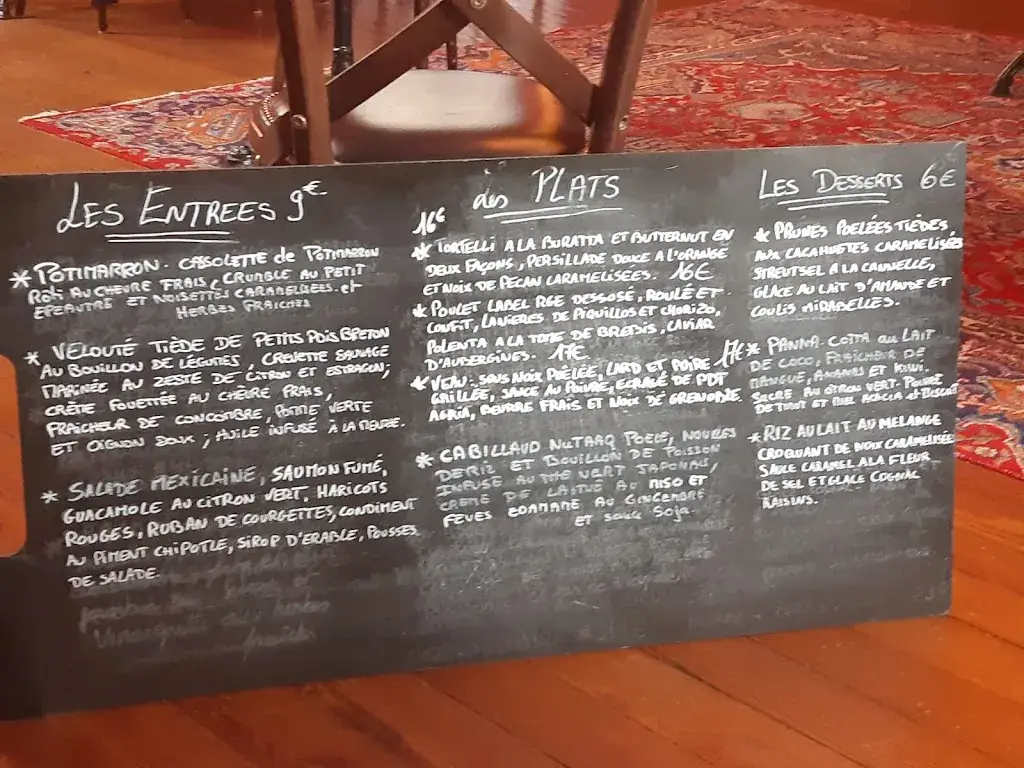 LES ENTREES 9€
* POTIMARRON. CASSOLETTE de POTIMARRON
RÔTI AU CHEVRE FRAIS, CRUMBLE AU PETIT
EPEAUTRE ET NOISETTES CARAMELISEES. et
HERBES FRAICHES
* VELOUTÉ TIÈDE DE PETITS POIS BRETON
AU BOUILLON DE LÉGUMES, CREVETTE SAUVAGE
MARINÉE AU ZESTE DE CITRON ET ESTRAGON,
CRÈME FOUETTÉE AU CHÈVRE FRAIS,
FRAICHEUR DE CONCOMBRE, POMME VERTE
ET OIGNON DOUX, HUILE INFUSÉ À LA MENTHE.
* SALADE MEXICAINE, SAUMON FUMÉ,
GUACAMOLE AU CITRON VERT, HARICOTS
ROUGES, RUBAN DE COURGETTES, CONDIMENT
AU PIMENT CHIPOTLE, SIROP D'ERABLE, POUSSES
DE SALADE.
des PLATS
16€
* TORTELLI A LA BURATTA ET BUTTERNUT EN
DEUX FAÇONS, PERSILLADE DOUCE A L'ORANGE
ET NOIX DE PECAN CARAMELISEES. 16€
* POULET LABEL RGE DESSOSÉ, ROULÉ ET
CONFIT, LANIERES DE PIQUILLOS ET CHORIZO,
POLENTA A LA TOME DE BREBIS, CAVIAR
D'AUBERGINES. 17€
* VEAU. SOUS NOIX POÊLÉE, LARD ET POIRE 17€
GRILLÉE, SAUCE AU POIVRE, ECRASÉ DE PDT
AGRIA, BEURRE FRAIS ET NOIX DE GRENOBLE.
* CABILLAUD NUTAAQ POELÉ, NOUILLES
DE RIZ ET BOUILLON DE POISSON
INFUSÉ AU THE VERT JAPONAIS,
CREME DE LAITUE AU MISO ET
FEVES EDAMAME AU GINGEMBRE
ET sauce SOJA.
LES DESSERTS 6€
* PRUNES POELÉES TIÈDES
AUX CACAHUETES CARAMELISÉES
STREUTSEL A LA CANNELLE,
GLACE AU LAIT D'AMANDE ET
COULIS MIRABELLES.
* PANNA-COTTA au LAIT
DE COCO, FRAÎCHEUR DE
MANGUE, ANANAS ET KIWI.
SUCRE AU CITRON VERT. POUDRE
DE THYM ET MIEL ACACIA et BISCUIT
* RIZ AU LAIT AU MELANGE
CROQUANT DE NOIX CARAMELISÉE
SAUCE CARAMEL A LA FLEUR
DE SEL ET GLACE COGNAC
RAISINS.